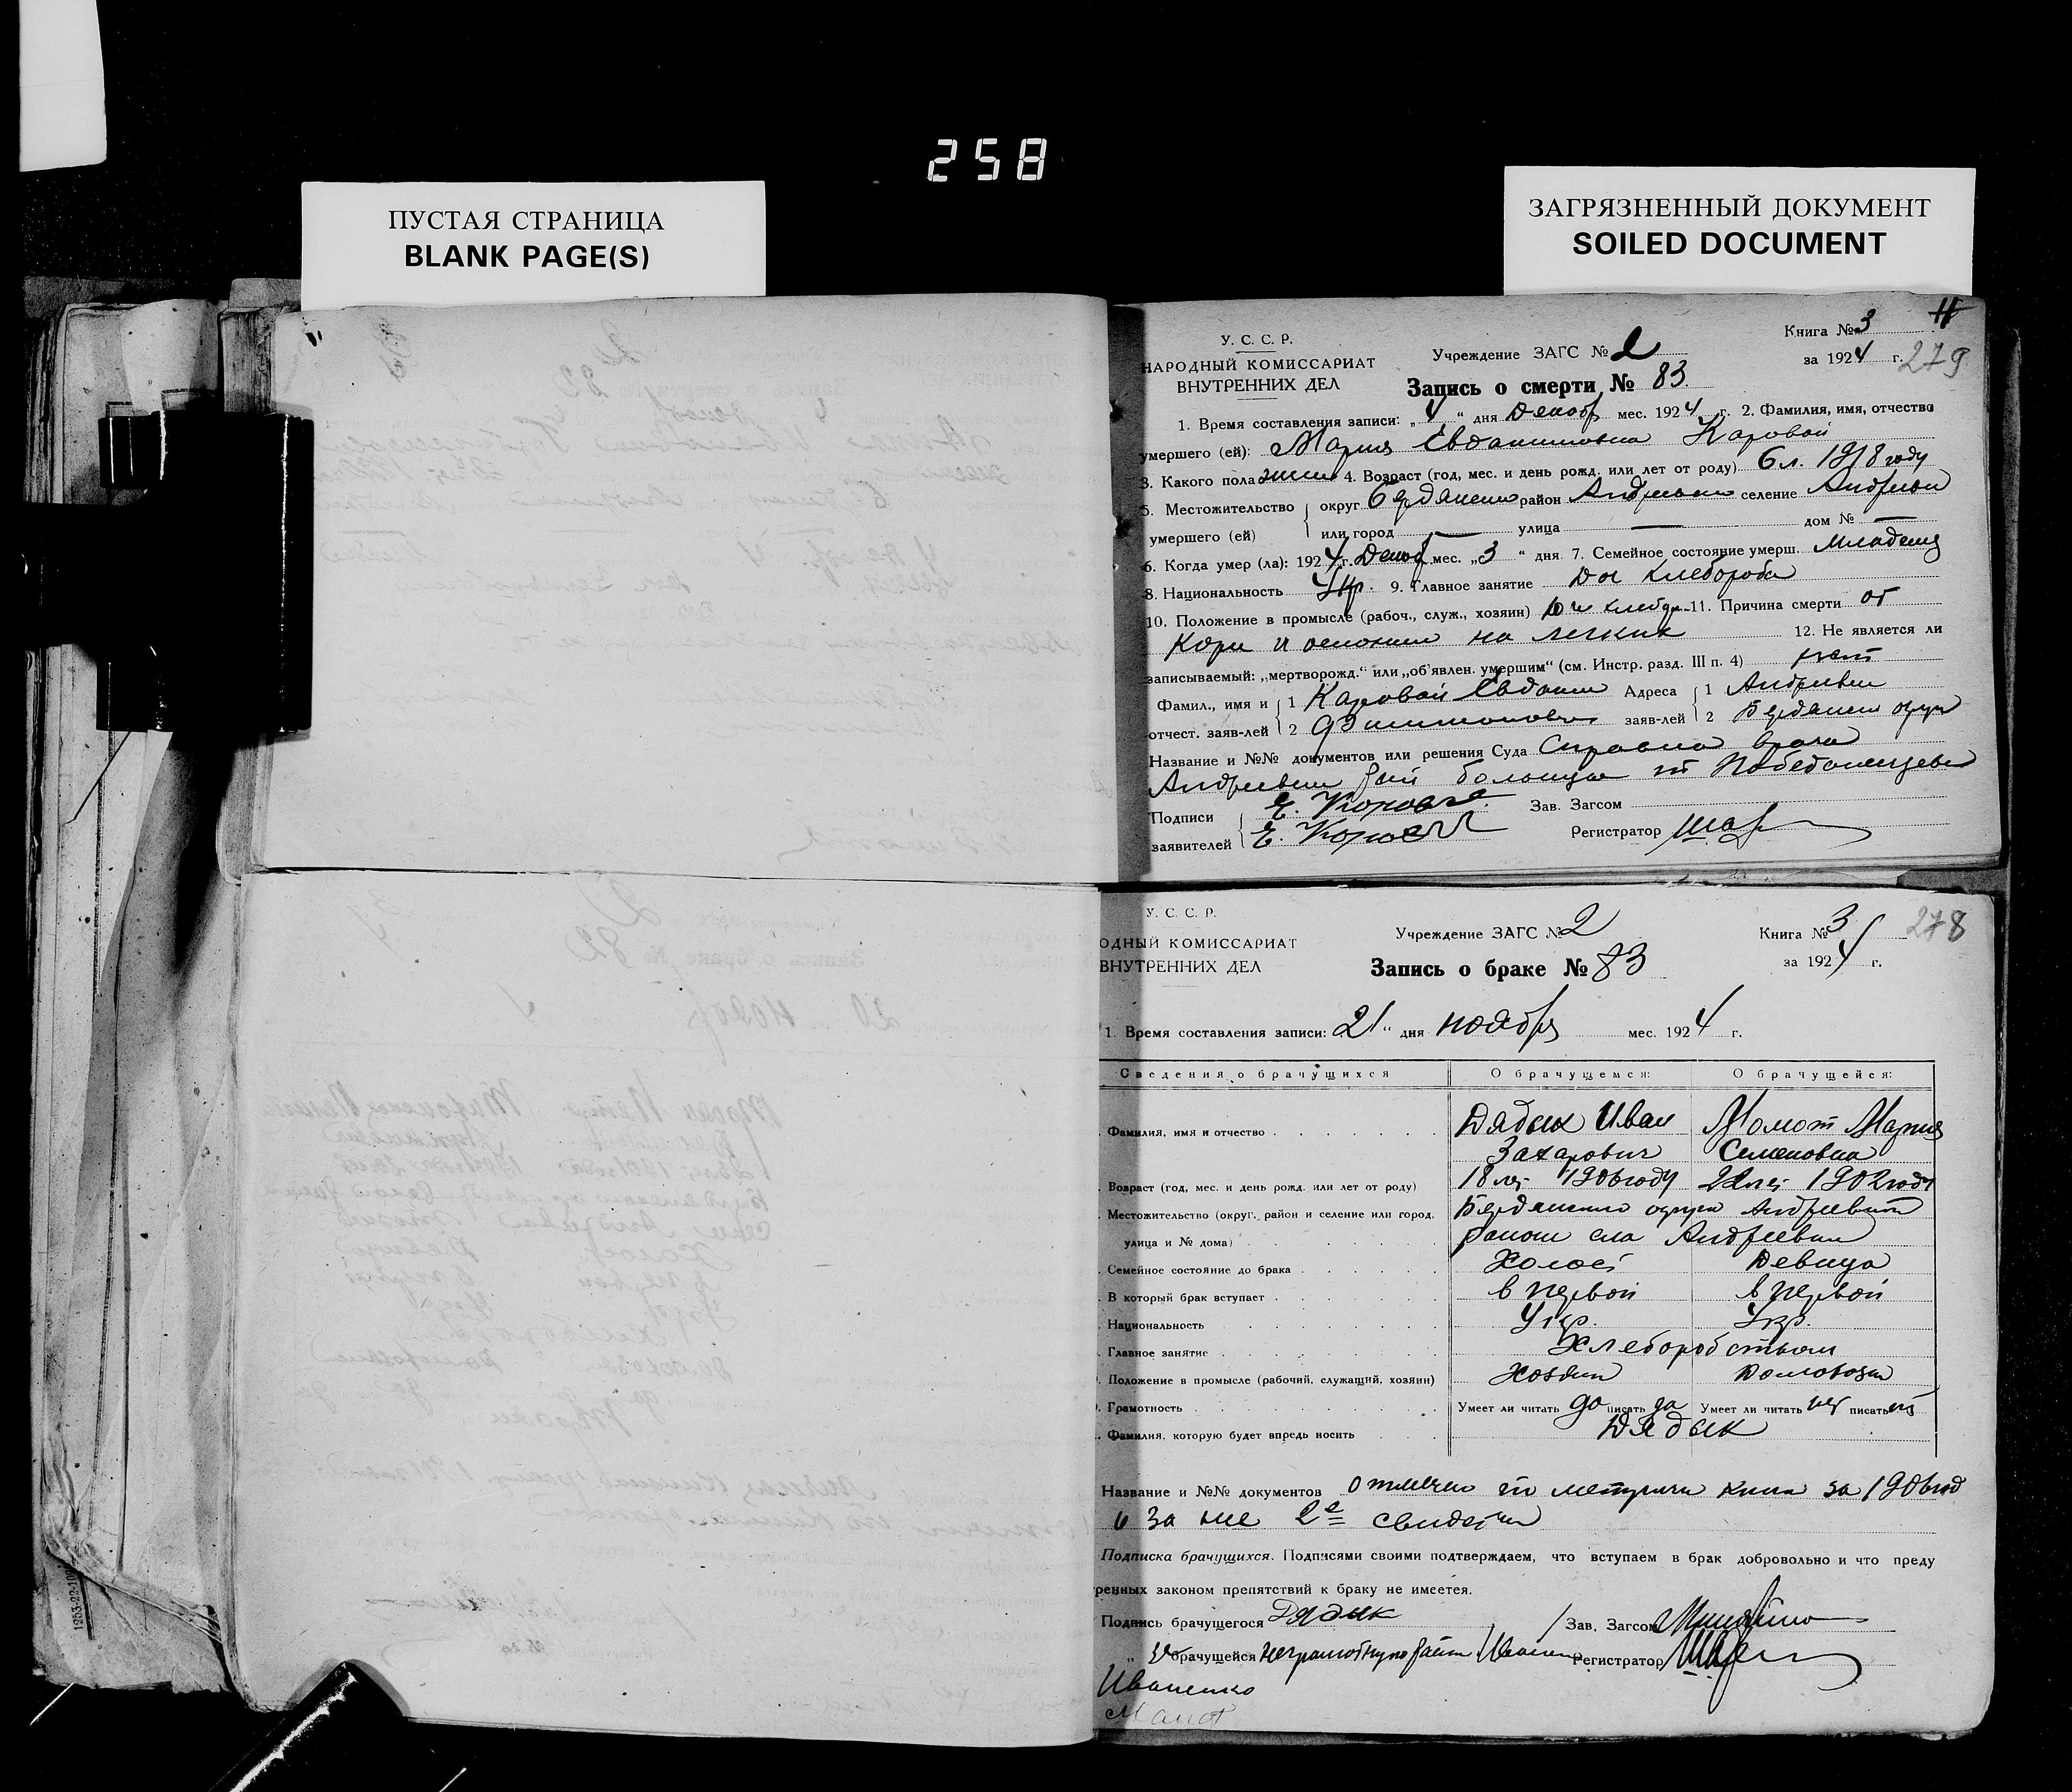 258
ПУСТАЯ СТРАНИЦА
BLANK PAGE(S)
ЗАГРЯЗНЕННЫЙ ДОКУМЕНТ
SOILED DOCUMENT
У. С. С. Р.
НАРОДНЫЙ КОМИССАРИАТ
ВНУТРЕННИХ ДЕЛ
Учреждение ЗАГС № 2
Запись о смерти № 83.
Книга № 3
за 1924 г. 279
1. Время составления записи: „4“ дня Декабр мес. 1924 г. 2. Фамилия, имя, отчество
умершего (ей): Мария Каровай
3. Какого пола женс 4. Возраст (год, мес. и день рожд. или лет от роду) 6 л. 1918 году
5. Местожительство округ Бердянско район Андреевско селение Андреевки
умершего (ей) или город — улица — дом № —
6. Когда умер (ла): 1924 г. Декаб мес. „3“ дня. 7. Семейное состояние умерш. Младенец
8. Национальность Укр. 9. Главное занятие Доч хлебороба
10. Положение в промысле (рабоч., служ., хозяин) 11. Причина смерти от
Кори и на легких 12. Не является ли
записываемый: „мертворожд.“ или „об'явлен. умершим“ (см. Инстр. разд. III п. 4) нет
Фамил., имя и 1 Каровай Адреса 1 Андреевки
отчест. заяв-лей 2 заяв-лей 2 Бердянско округ
Название и №№ документов или решения Суда Справка врача
Андреевки рай больницы
Подписи Е. Зав. Загсом
заявителей Е. Регистратор
У. С. С. Р.
ОДНЫЙ КОМИССАРИАТ
ВНУТРЕННИХ ДЕЛ
Учреждение ЗАГС № 2
Запись о браке № 83
Книга № 3 278
за 1924 г.
1. Время составления записи: 21“ дня ноября мес. 1924 г.
Сведения о брачущихся О брачущемся: О брачущейся:
Фамилия, имя и отчество Дядык Иван Момот Мария
Захарович Семеновна
Возраст (год, мес. и день рожд. или лет от роду) 18 лет 1906 году 22 лет 1902 году
Местожительство (округ, район и селение или город, Бердянского округа Андреевский
улица и № дома) район села Андреевки
Семейное состояние до брака Холост Девица
В который брак вступает в первой в первой
Национальность Укр. Укр.
Главное занятие Хлеборобством
Положение в промысле (рабочий, служащий, хозяин) Хозяин Домохозяй
Грамотность Умеет ли читать да писать да Умеет ли читать нет писать нет
Фамилия, которую будет впредь носить Дядык
Название и №№ документов отмечен по метрич книги за 1906 год
и за нее 2е свидетел
Подписка брачущихся. Подписями своими подтверждаем, что вступаем в брак добровольно и что преду
ренных законом препятствий к браку не имеется.
Подпись брачущегося Дядык Зав. Загсом
„ брачущейся Регистратор
Иваненко